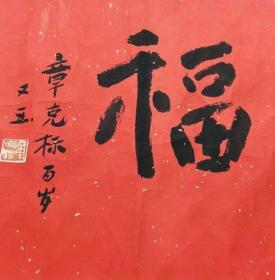 福
章克标百岁
又五